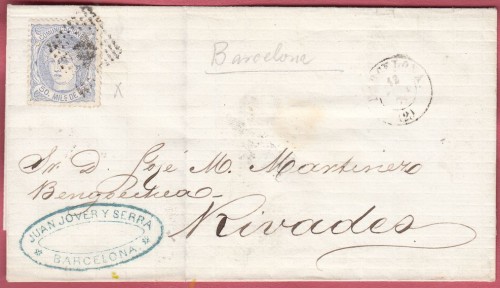 50. MILS DE
Barcelona
BARCELONA
12
(2)
x
Sr. D. José M. Martinez
Bengoechea
Rivades
JUAN JOVER Y SERRA
* BARCELONA *